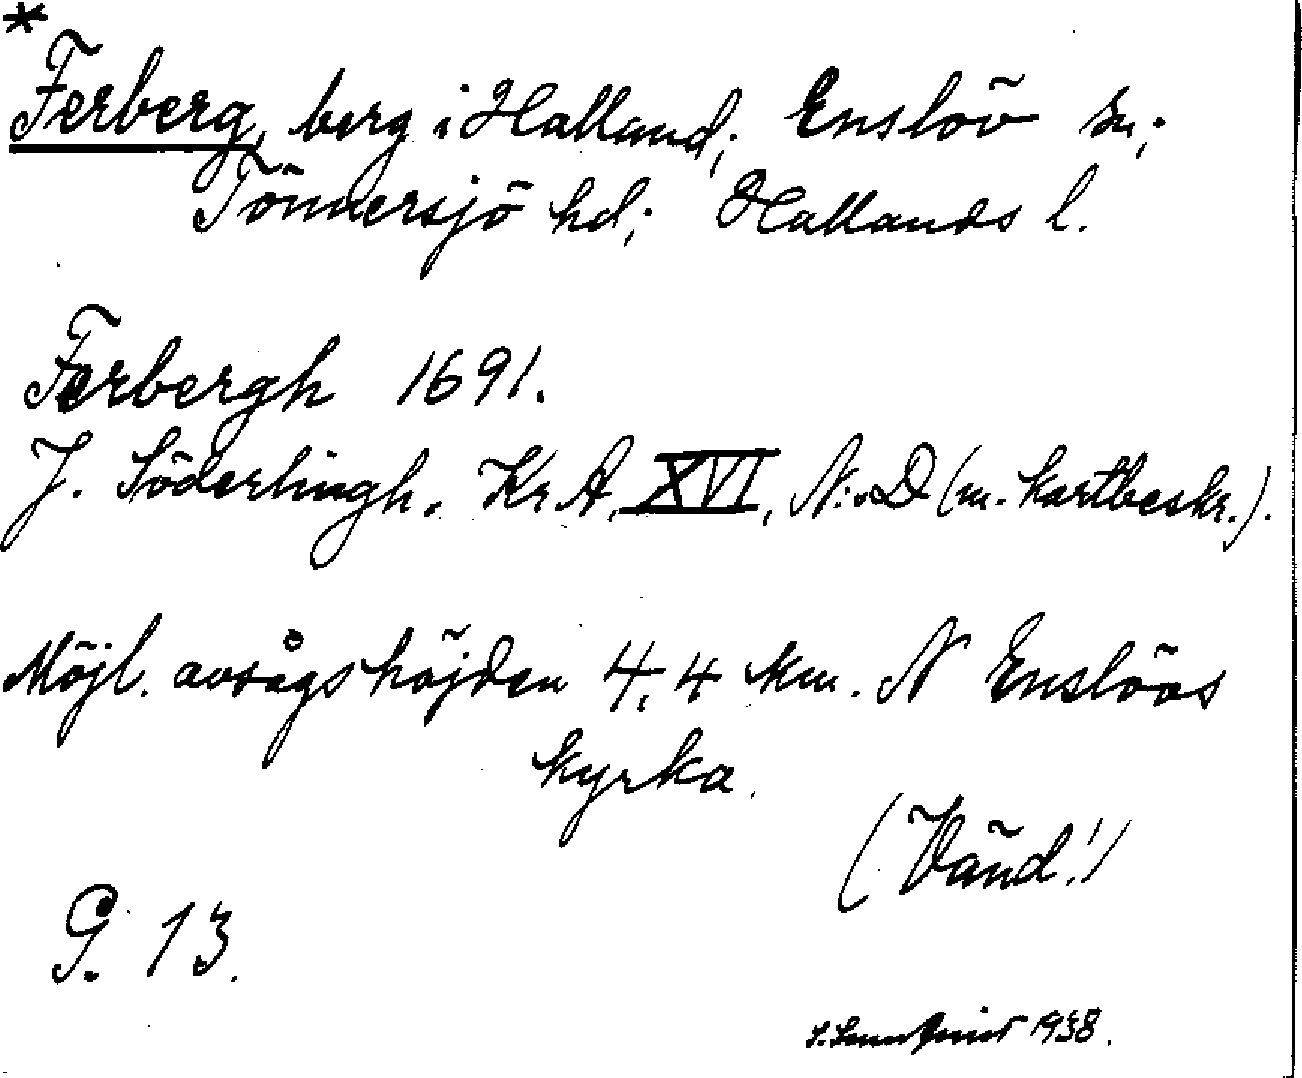 *
Ferberg, berg i Halland; Enslöv sn;
Tönnersjö hd; Hallands l.
Ferbergh 1691.
J. Söderlingh. Kr A, XVI, N:o D (m. kartbeskr.).
Möjl. avságs höjden 4,4 km. N Enslövs
kyrka.
(Vänd!)
G. 13.
1938.